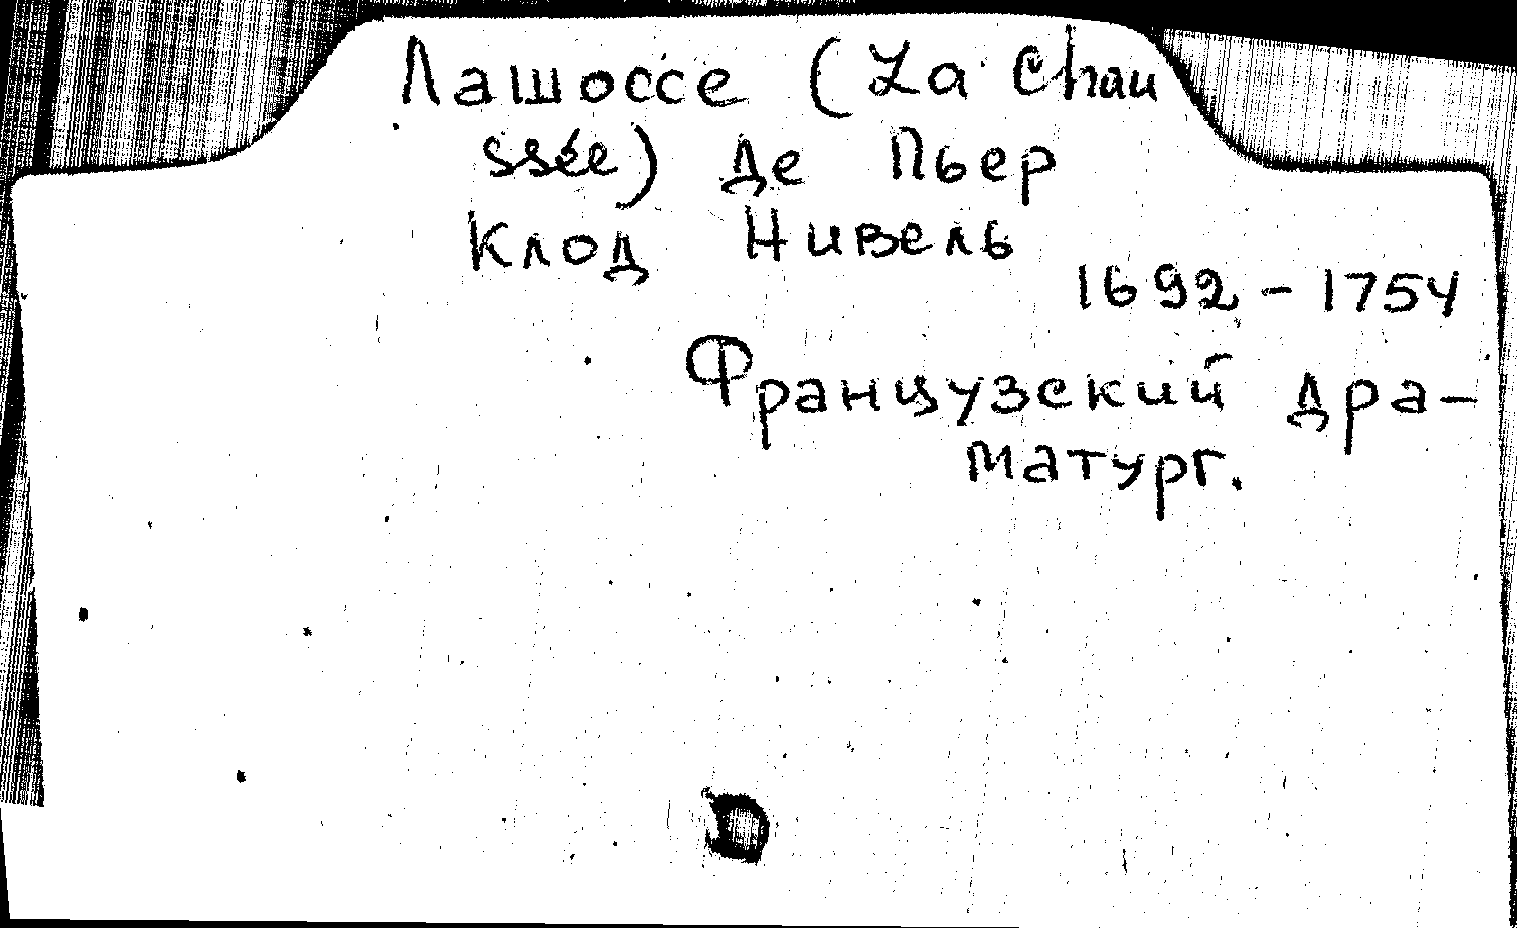 Лашоссе (La Chau
ssée) де Пьер
Клод Нивель
1692 - 1754
Французский дра-
матург.